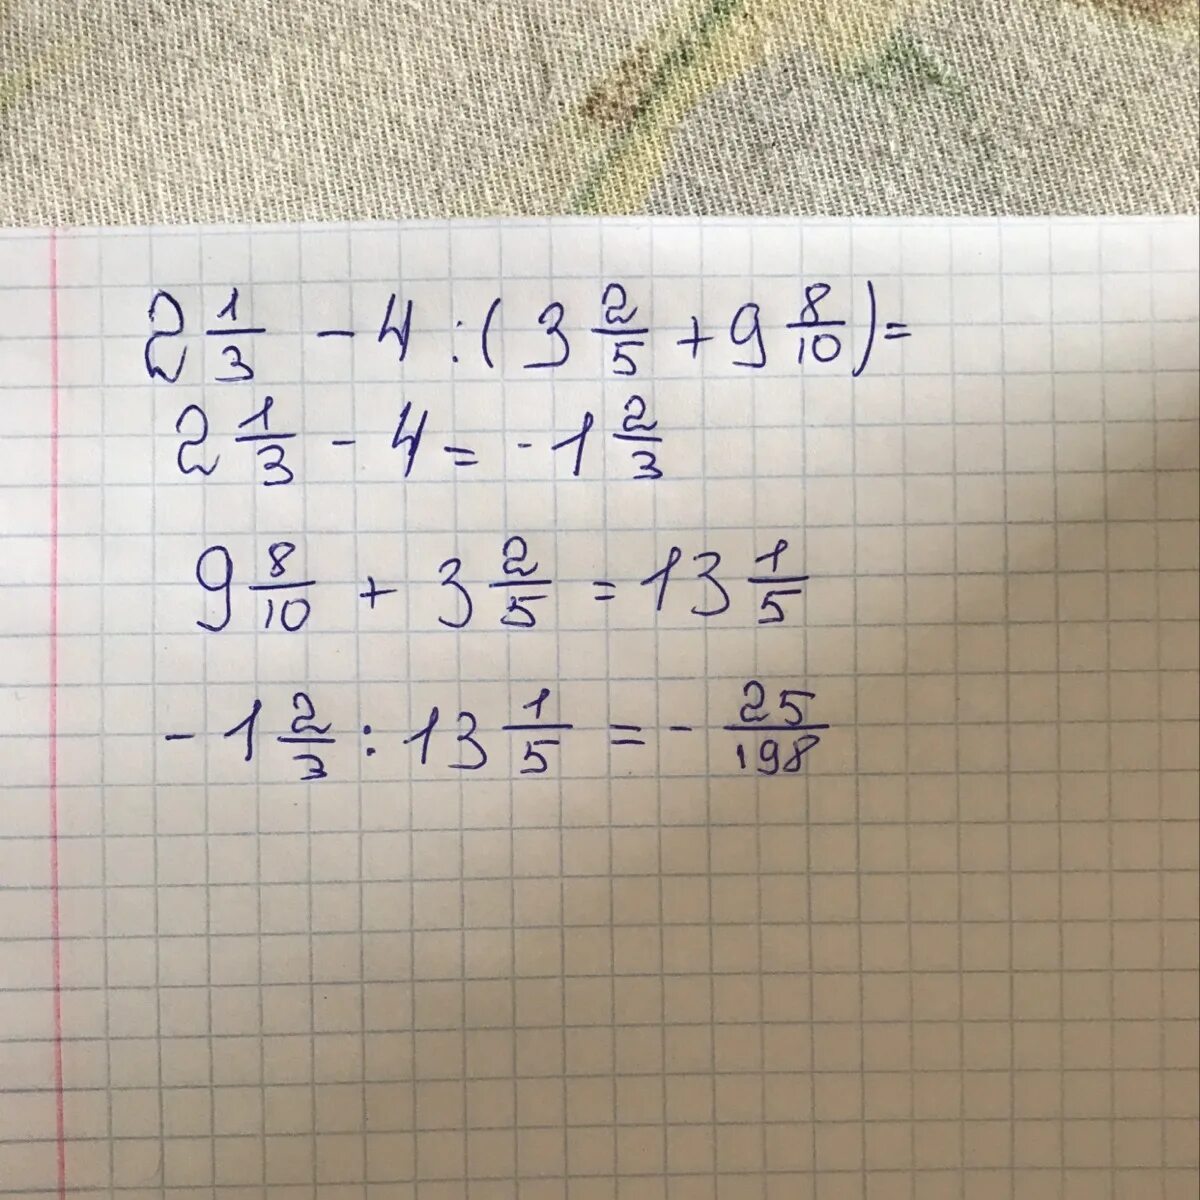 2 1/3 - 4 : ( 3 2/5 + 9 8/10 ) =
2 1/3 - 4 = - 1 2/3
9 8/10 + 3 2/5 = 13 1/5
- 1 2/3 : 13 1/5 = - 25/198